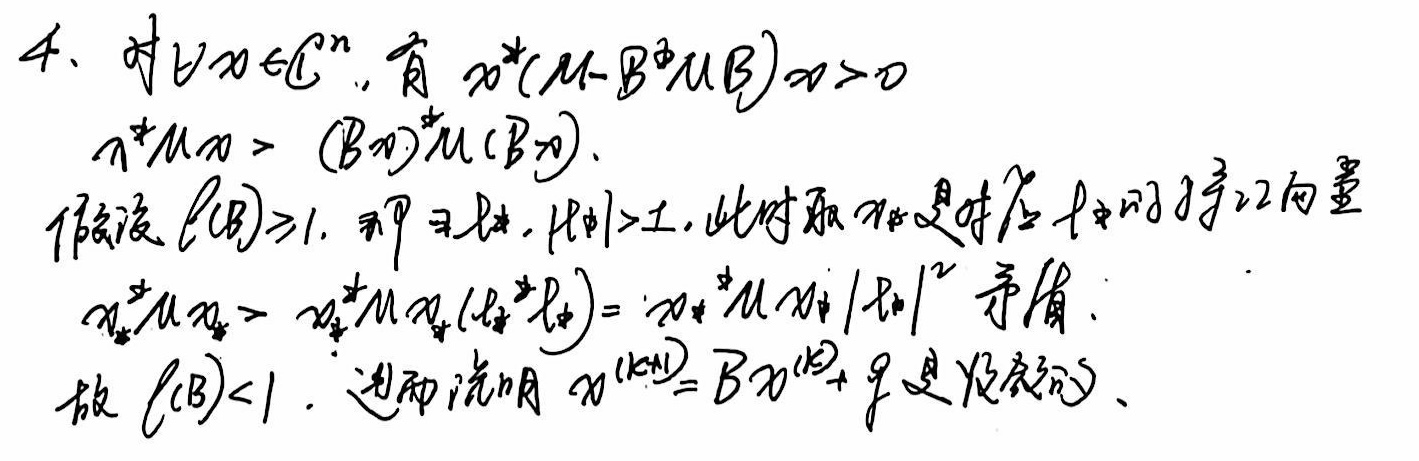 4、对∀x∈ℂⁿ,有 x*(M-B*MB)x>0
x*Mx > (Bx)*M(Bx).
假设 ρ(B)≥1. 即∃t*, |t*|≥1, 此时取 x* 是对应 t* 的特征向量
x**Mx* > x**Mx*(t**t*) = x**Mx*|t*|² 矛盾.
故 ρ(B)<1. 进而说明 x⁽ᵏ⁺¹⁾=Bx⁽ᵏ⁾+g 是收敛的、